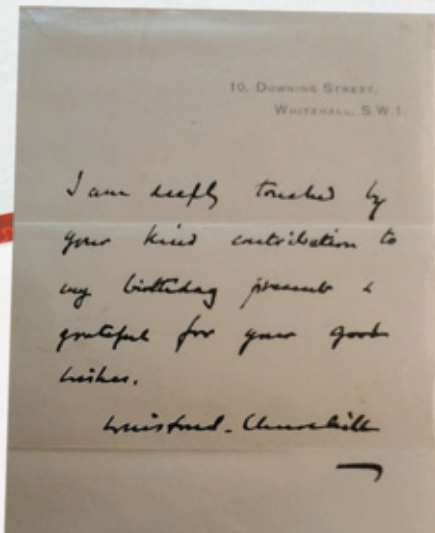 10, DOWNING STREET,
WHITEHALL, S.W.1.
I am deeply touched by
your kind contribution to
my birthday present &
grateful for your good
wishes.
Winston S. Churchill